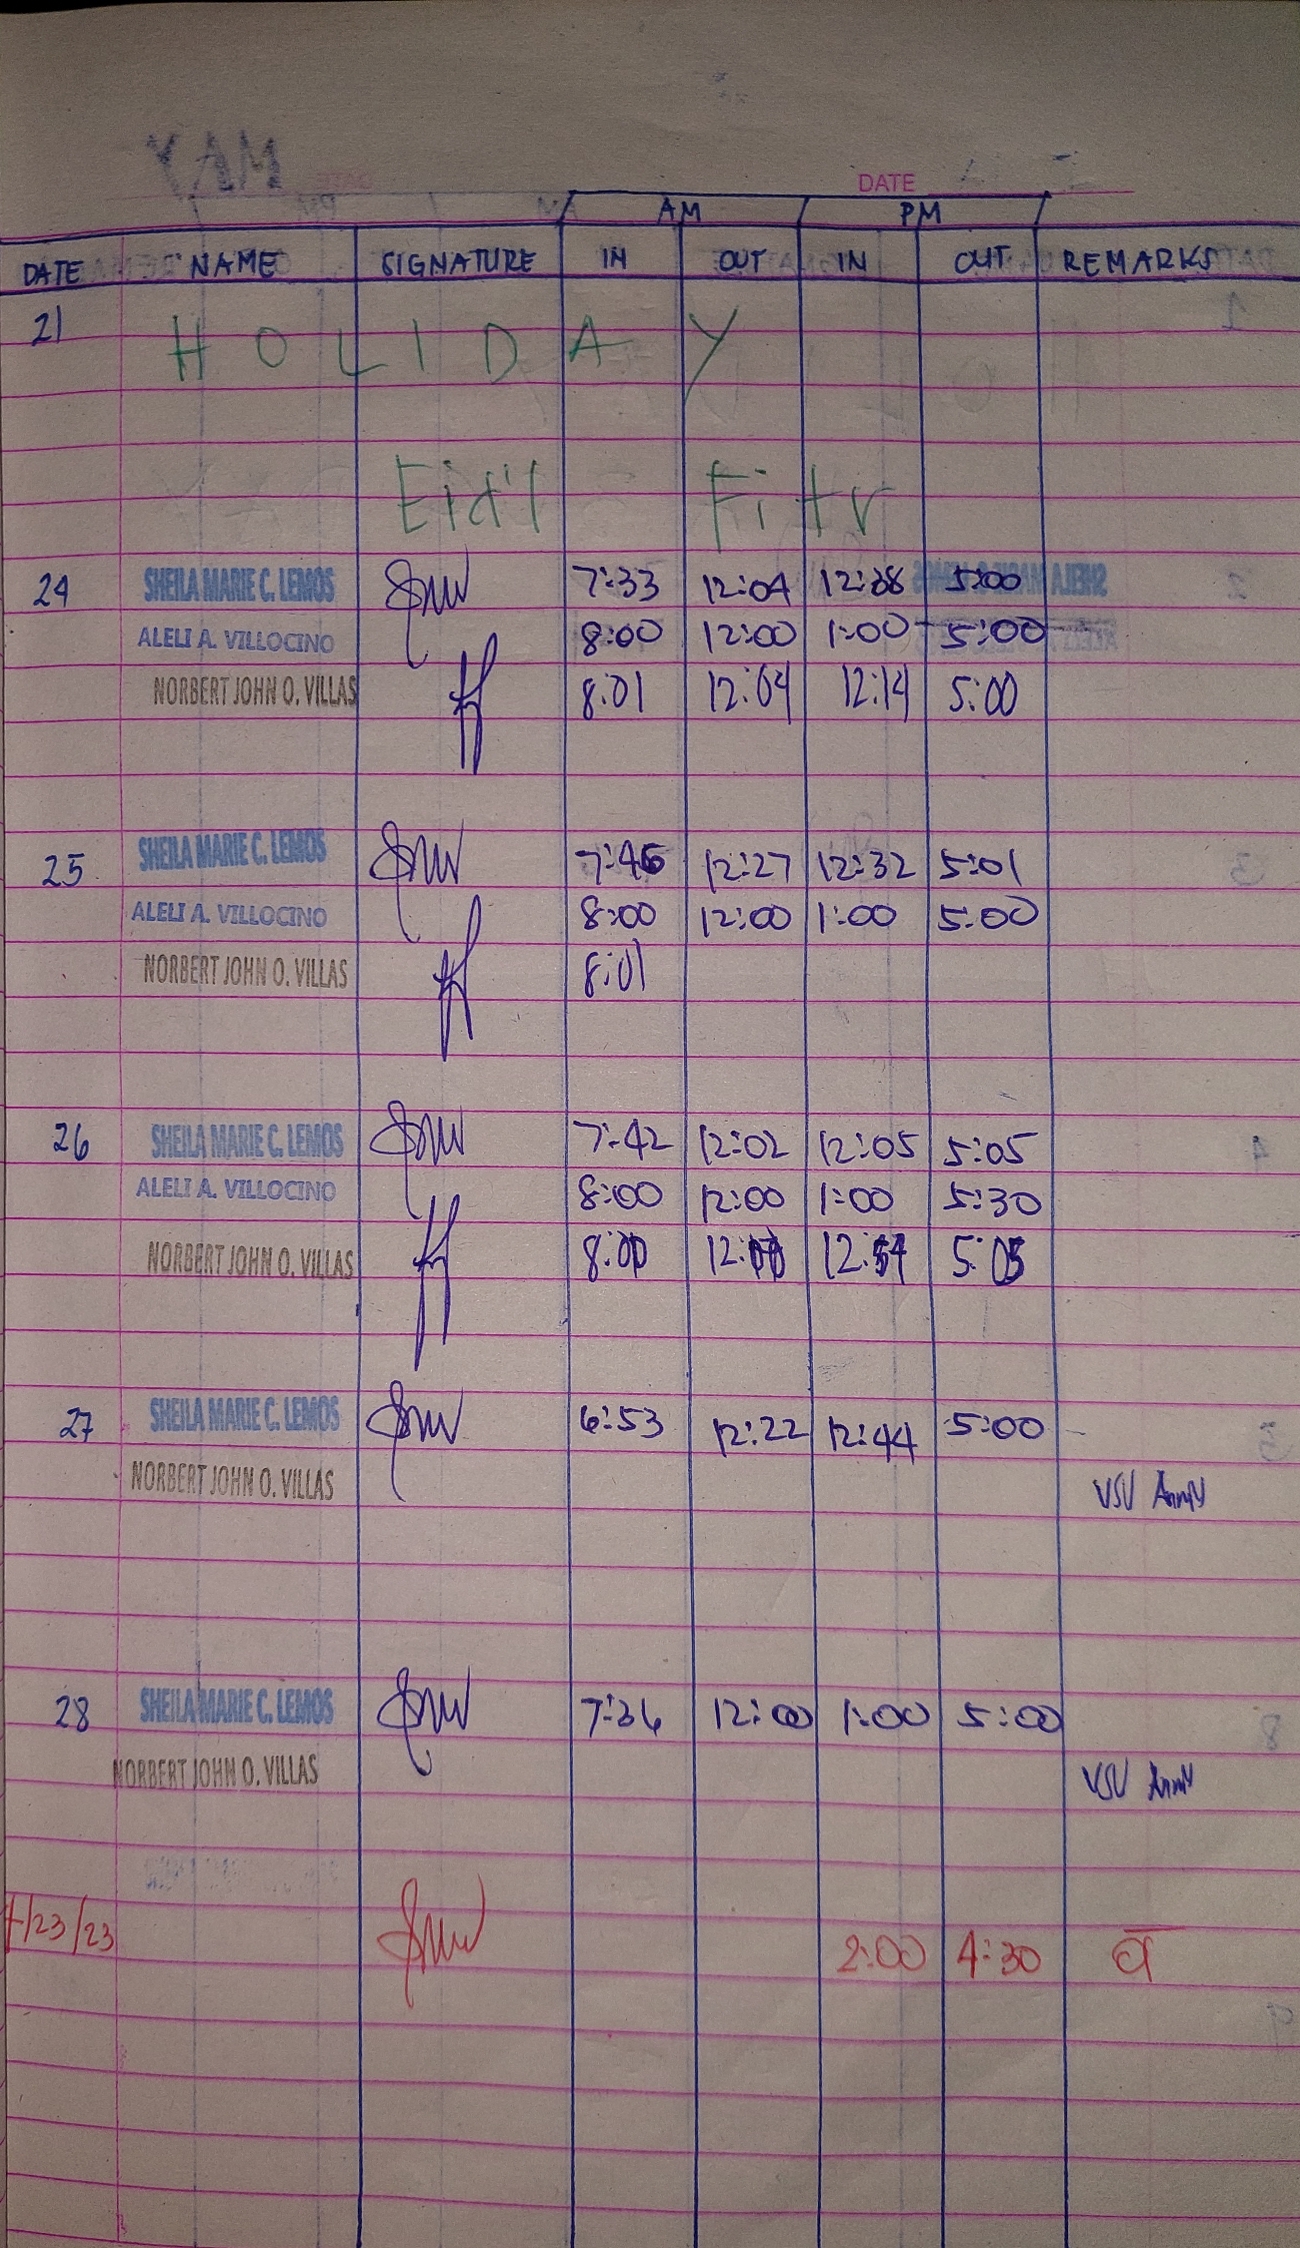 DATE
AM PM
DATE NAME SIGNATURE IN OUT IN OUT REMARKS
21 HOLIDAY
Eid'l Fitr
24 SHEILA MARIE C. LEMOS 7:33 12:04 5:00
ALELI A. VILLOCINO 8:00 12:00 1:00 5:00
NORBERT JOHN O. VILLAS 8:01 12:04 12:14 5:00
25 SHEILA MARIE C. LEMOS 7:46 12:27 12:32 5:01
ALELI A. VILLOCINO 8:00 12:00 1:00 5:00
NORBERT JOHN O. VILLAS 8:01
26 SHEILA MARIE C. LEMOS 7:42 12:02 12:05 5:05
ALELI A. VILLOCINO 8:00 12:00 1:00 5:30
NORBERT JOHN O. VILLAS 5:05
27 SHEILA MARIE C. LEMOS 6:53 12:22 12:44 5:00
NORBERT JOHN O. VILLAS VSU
28 SHEILA MARIE C. LEMOS 7:36 12:00 1:00 5:00
NORBERT JOHN O. VILLAS VSU
4/23/23 2:00 4:30